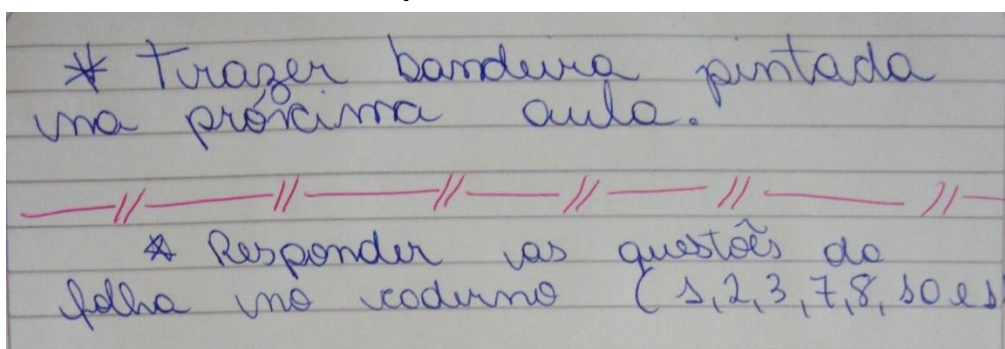 * Trazer bandeira pintada
na próxima aula.
* Responder as questões da
folha no caderno (1,2,3,7,8,10 e